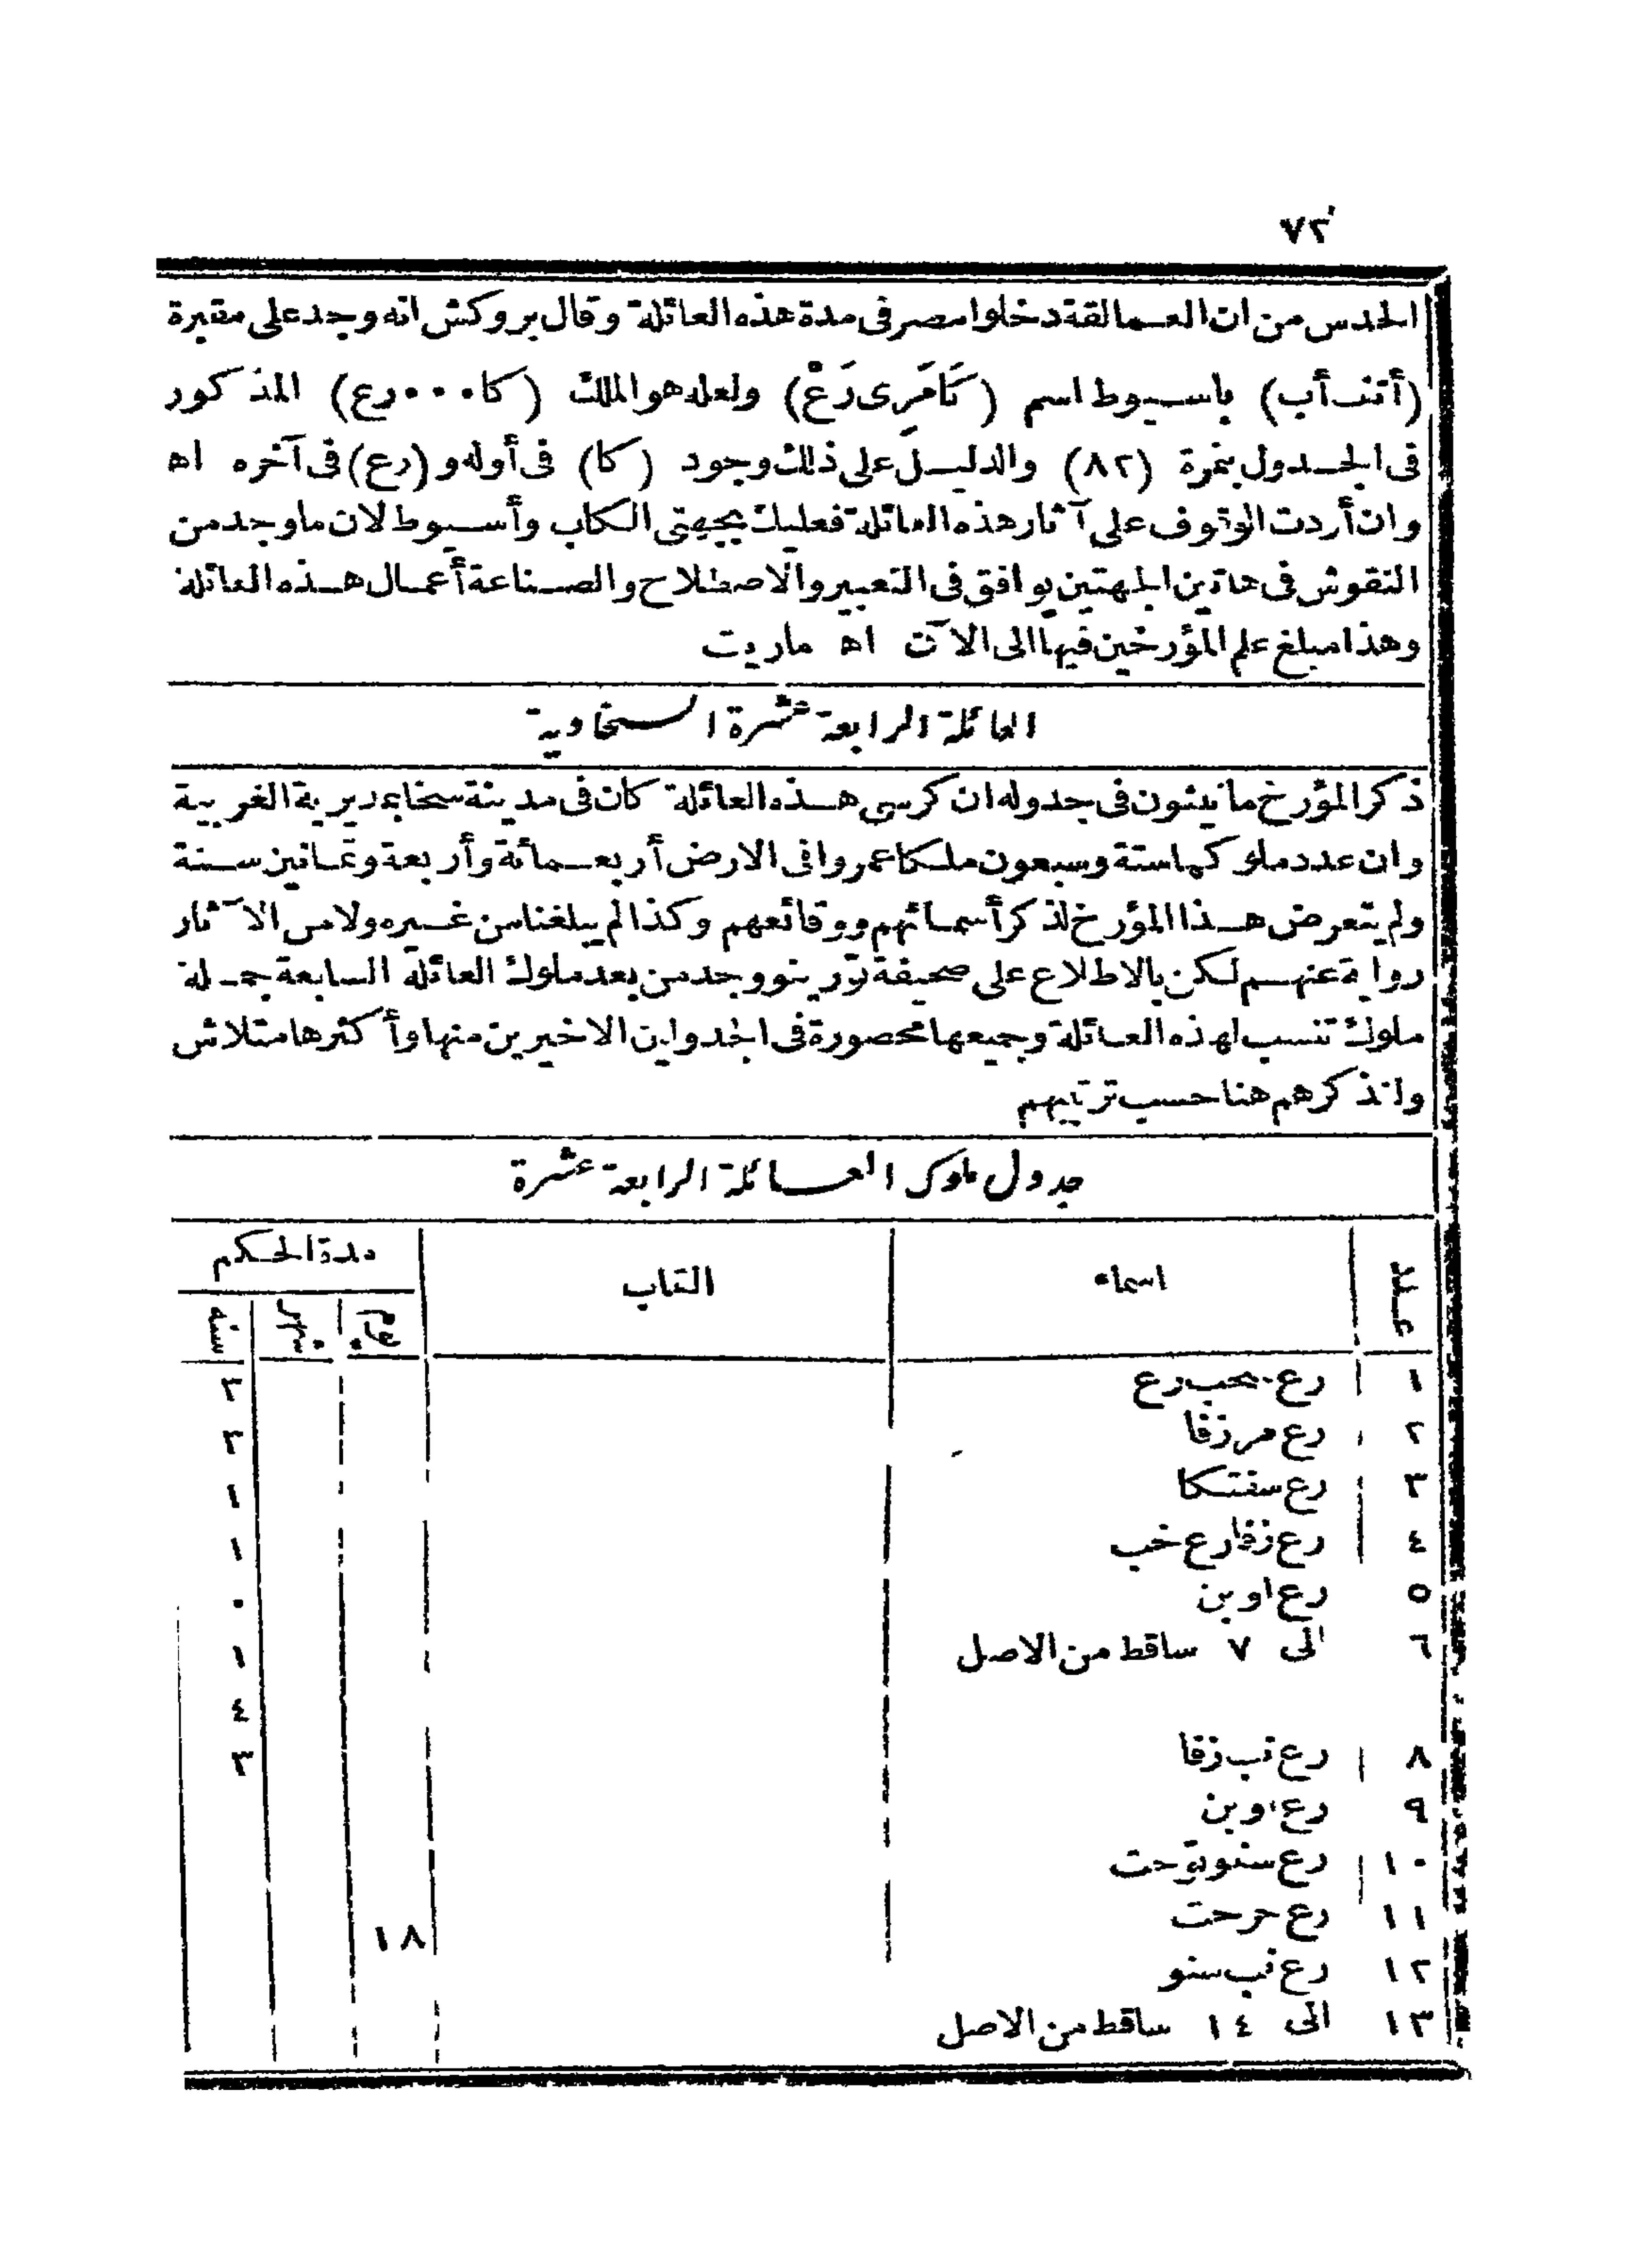 ٧٢
الحدس من ان العمالقة دخلوا مصر فى مدة هذه العائلة وقال بروكش انه وجد على مقبرة
(أتف أب) باسيوط اسم (كَامَرِى رَعْ) ولعله هو الملك (كا٠٠٠رع) المذكور
فى الجدول بنمرة (٨٢) والدليل على ذلك وجود (كا) فى أوله و(رع) فى آخره اه
وان أردت الوقوف على آثار هذه العائلة فعليك بجهتى الكاب وأسيوط لان ما وجد من
النقوش فى هاتين الجهتين يوافق فى التعبير والاصطلاح والصناعة أعمال هذه العائلة
وهذا مبلغ علم المؤرخين فيها الى الآن اه ماريت
العائلة الرابعة عشرة السخاوية
ذكر المؤرخ مانيثون فى جدوله ان كرسى هذه العائلة كان فى مدينة سخا بمديرية الغربية
وان عدد ملوكها ستة وسبعون ملكا عمروا فى الارض أربعمائة وأربعة وثمانين سنة
ولم يتعرض هذا المؤرخ لذكر أسمائهم ووقائعهم وكذا لم يبلغنا من غيره ولا من الآثار
رواية عنهم لكن بالاطلاع على صحيفة تورينو وجد من بعد ملوك العائلة السابعة جملة
ملوك تنسب لهذه العائلة وجميعها محصورة فى الجدولين الاخيرين منها وأكثرها متلاش
ولنذكرهم هنا حسب ترتيبهم
جدول ملوك العائلة الرابعة عشرة
عدد اسماء القاب مدة الحكم
يوم شهر سنه
١ رع نحب رع ٢
٢ رع مر زفا ٣
٣ رع سفتكا ١
٤ رع زفا رع خب ١
٥ رع اوبن ٠
٦ الى ٧ ساقط من الاصل ١
٤
٨ رع نب زفا ٣
٩ رع اوبن
١٠ رع حت
١١ رع حرحت ١٨
١٢ رع نب سنو
١٣ الى ١٤ ساقط من الاصل